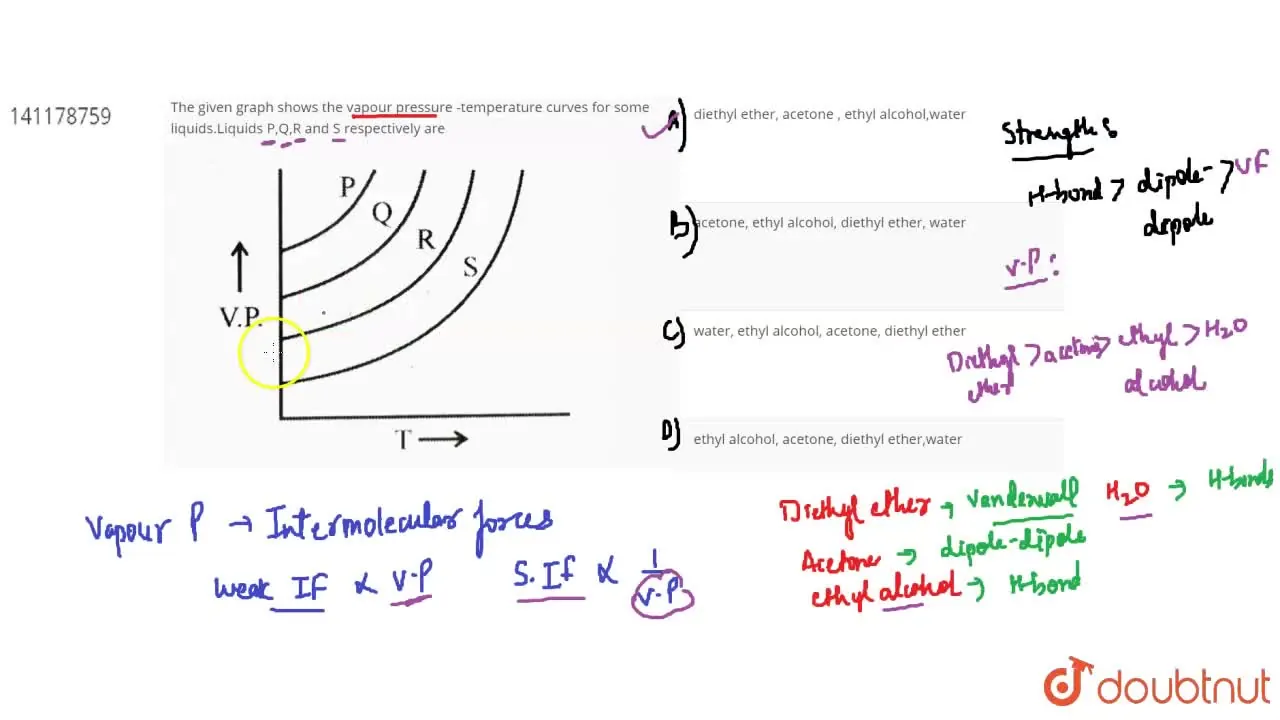 141178759
The given graph shows the vapour pressure -temperature curves for some
liquids.Liquids P,Q,R and S respectively are
P
Q
R
S
V.P.
T
A)
diethyl ether, acetone , ethyl alcohol,water
B)
acetone, ethyl alcohol, diethyl ether, water
C)
water, ethyl alcohol, acetone, diethyl ether
D)
ethyl alcohol, acetone, diethyl ether,water
Strength :
H-bond > dipole- > VF
dipole
V.P :
Diethyl > acetone > ethyl > H2O
ether alcohol
Vapour P → Intermolecular forces
Weak IF ∝ V.P
S.If ∝ 1
V.P
Diethyl ether → Vanderwall
H2O → H-bonds
Acetone → dipole-dipole
ethyl alcohol → H-bond
doubtnut